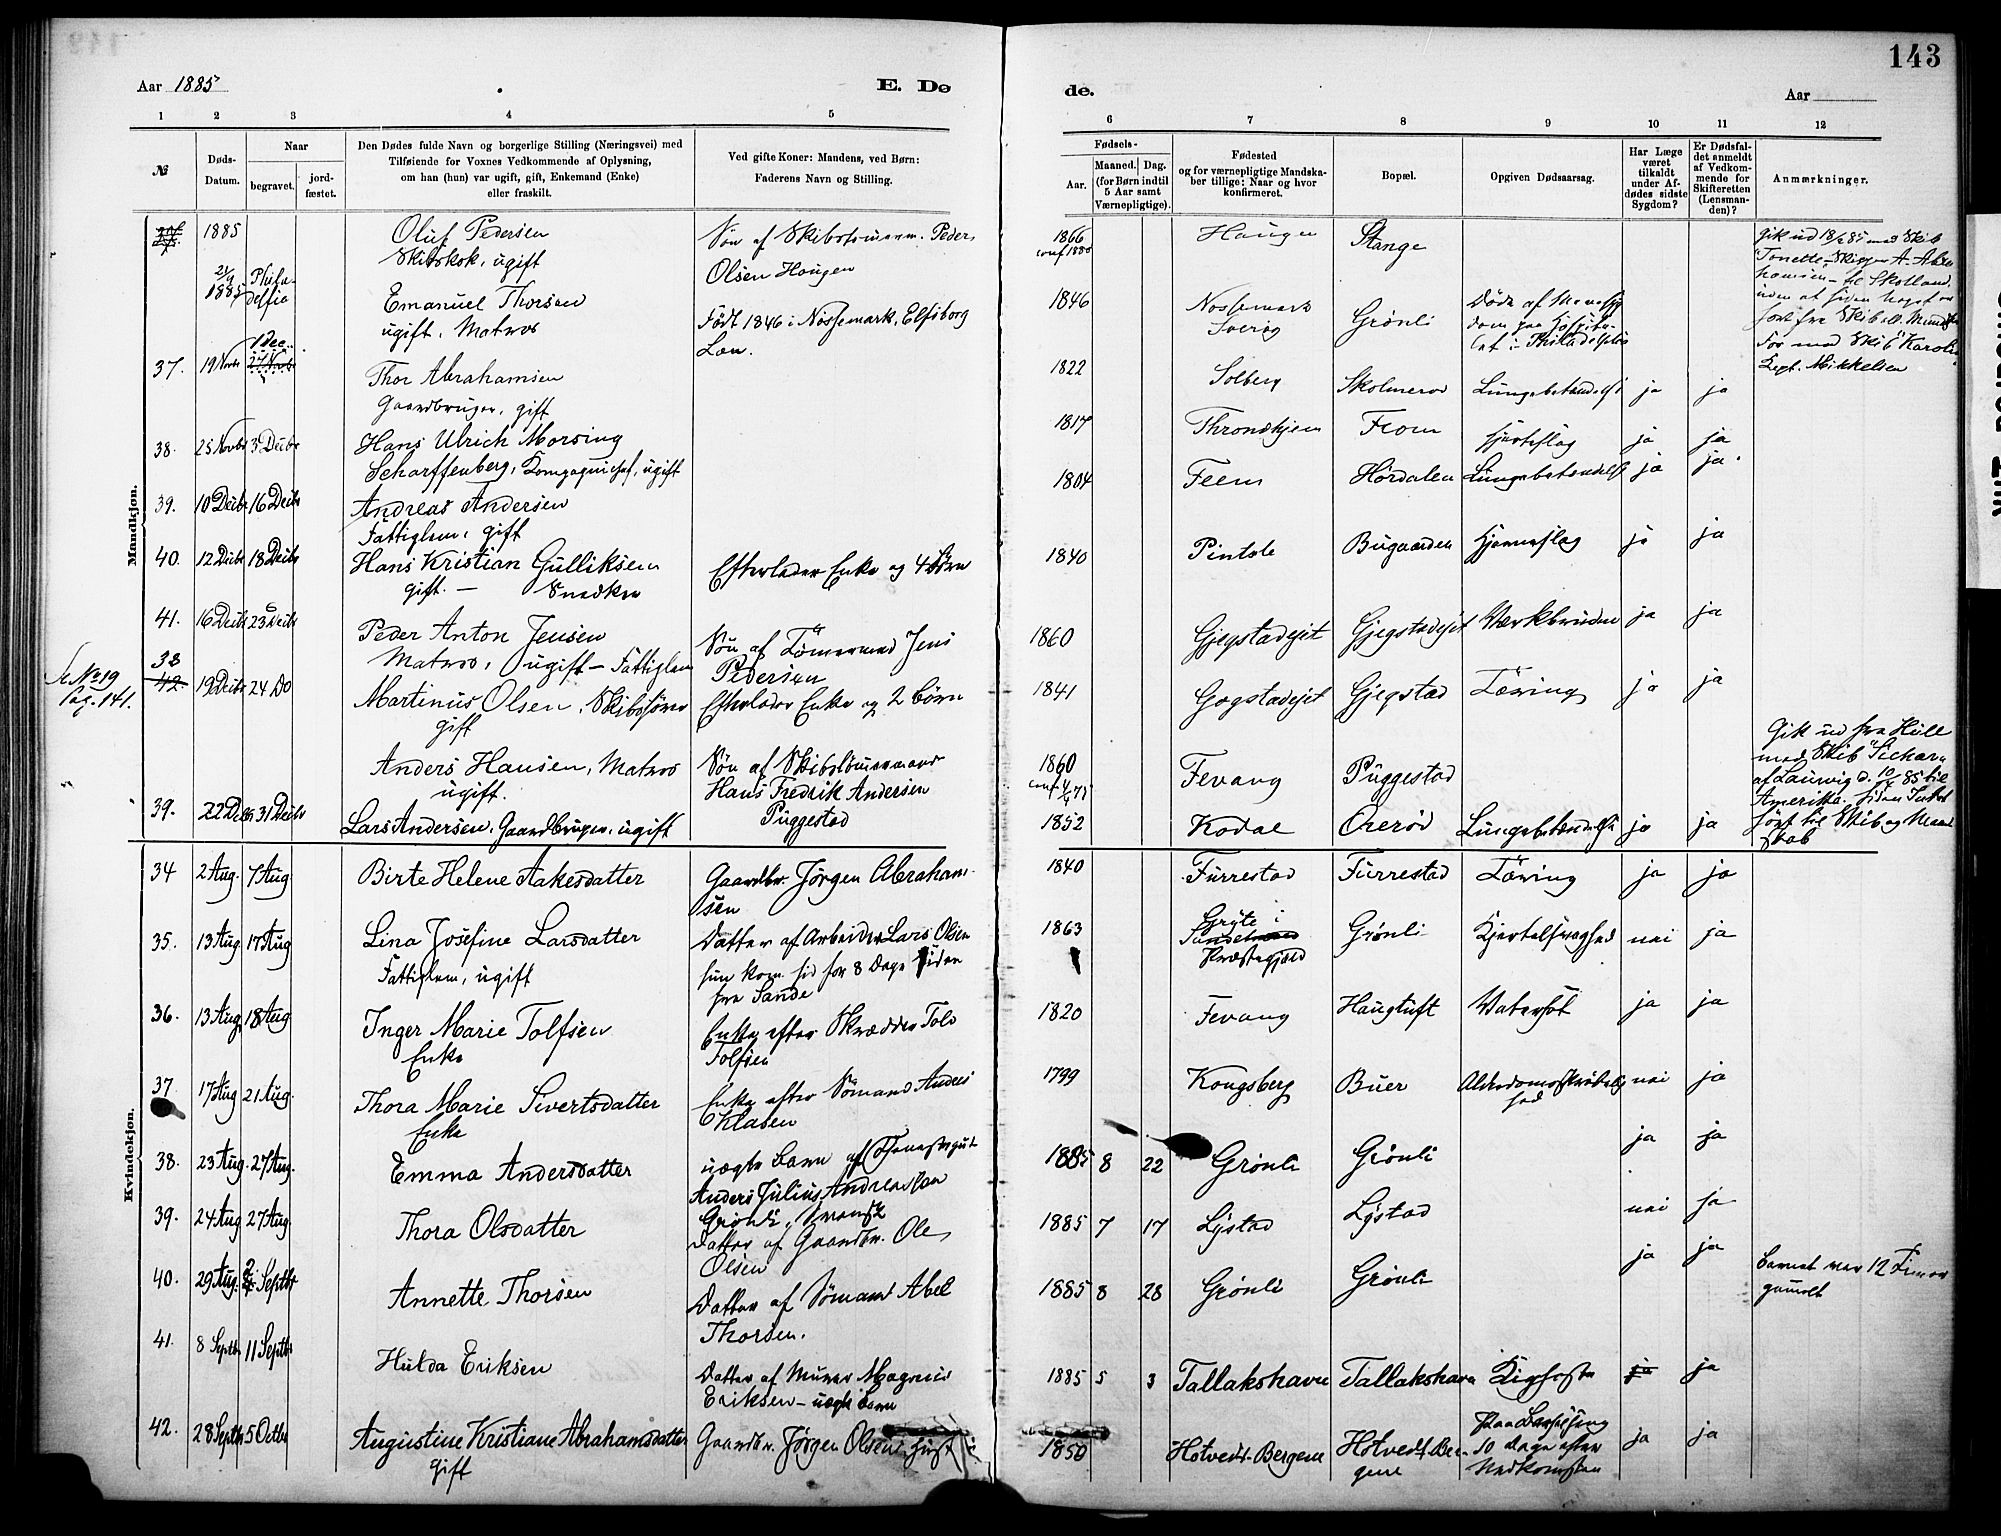 143
Aar 1885
E. Dø
de.
Aar
1 2 3 4 5
6 7 8 9 10 11 12
№
Døds-
Datum.
Naar
begravet.
jord-
fæstet.
Den Dødes fulde Navn og borgerlige Stilling (Næringsvei) med
Tilføiende for Voxnes Vedkommende af Oplysning,
om han (hun) var ugift, gift, Enkemand (Enke)
eller fraskilt.
Ved gifte Koner: Mandens, ved Børn:
Faderens Navn og Stilling.
Fødsels-
Aar.
Maaned. Dag.
(for Børn indtil
5 Aar samt
Værnepligtige).
Fødested
og for værnepligtige Mandska-
ber tillige: Naar og hvor
konfirmeret.
Bopæl.
Opgiven Dødsaarsag.
Har Læge
været
tilkaldt
under Af-
dødes sidste
Sygdom?
Er Dødsfal-
det anmeldt
af Vedkom-
mende for
Skifteretten
(Lensman-
den)?
Anmærkninger.
Mandkjøn.
1885 Oluf Pedersen
Skibskok, ugift
Søn af Skibstømerm. Peder
Olsen Haugen
1866
conf 1880
Haugen Stange
Gik ud 18/2 85 med Skib
"Tonette" Skipper A. Abra
hamsen, til Skotland,
uden at siden
21/9
1885 Phila-
delfia
Emanuel Thorsen
ugift, Matros
Født 1846 i Nössemark, Elfsborg
Læn.
1846 Nössemark
Sverig
Grönli
Døde af
dom paa Hospita-
let i Philadelphia
For med Skib "Karoli
Kapt. Mikkelsen
37. 19 Novbr 1 Dec.
Thor Abrahamsen
Gaardbruger, gift
1822 Solberg Skolmerød Lungebetændelse ja ja
38. 25 Novbr 3 Decbr
Hans Ulrich Morsing
Scharffenberg, Kompagnichef, ugift
1817 Throndhjem From Hjerteslag ja ja
39. 10 Decbr 16 Decbr
Andreas Andersen
Fattiglem, gift
1804 Feen Hørdalen Lungebetændelse ja ja
40. 12 Decbr 18 Decbr
Hans Kristian Gulliksen
gift. — Snedker
Efterlader Enke og 4 Børn
1840 Pintsle Bugaarden Hjerneslag ja ja
41. 16 Decbr 23 Decbr
Peder Anton Jensen
Matros, ugift — Fattiglem
Søn af Tömermad Jens
Pedersen
1860 Gjegstadejet Gjegstadejet Værkbruden ja ja
Se No 19
Pag. 141.
38
42. 19 Decbr 24 Do
Martinus Olsen, Skibsfører
gift
Efterlader Enke og 2 børn
1841 Gogstadejet Gjegstad Tæring ja ja
Anders Hansen, Matros
ugift.
Søn af Skibstömermand
Hans Fredrik Andersen
Puggestad
1860
Fevang Puggestad
Gik ud fra Hull
med Skib
af Laurvig d. 10/ 85 til
Amerika. siden Intet
hørt til Skib og Mand
skab
39. 22 Decbr 31 Decbr
Lars Andersen, Gaardbruger, ugift
1852 Kodal Ørerød Lungebetændelse ja ja
Kvindekjøn.
34 2 Aug. 7 Aug
Birte Helene Aakesdatter
Gaardbr. Jörgen Abraham-
sen
1840 Furrestad Furrestad Tæring ja ja
35. 13 Aug 17 Aug
Lina Josefine Larsdatter
Fattiglem, ugift
Datter af Arbeider Lars Olsen
hun kom hid for 8 Dage siden
fra Sande
1863 Gryte i
Præstegjæld
Grönli Kjertelsvaghed nei ja
36. 13 Aug 18 Aug
Inger Marie Tolfsen
Enke
Enke efter Skrædder Tolv
Tolfsen
1820 Fevang Haugtuft Vatersot ja ja
37 17 Aug 21 Aug.
Thora Marie Sivertsdatter
Enke
Enke efter Sömand Andres
Clasen
1799 Kongsberg Buer Alderdomsskröbelig
hed nei ja
38. 23 Aug. 27 Aug.
Emma Andersdatter
uægte Barn af Tjenestegut
Anders Julius Andreassen
Grönli, Svensk
1885 8 22 Grönli Grönli ja ja
39. 24 Aug 27 Aug.
Thora Olsdatter
Datter af Gaardbr. Ole
Olsen
1885 7 17 Lystad Lystad nei ja
40. 29 Aug. 2 Septbr
Annette Thorsen
Datter af Sömand Abel
Thorsen.
1885 8 28 Grönli Grönli ja ja
Barnet var 12 Timer
gammelt
41. 8 Septbr 11 Septbr
Hulda Eriksen
Datter af Murer Magnus
Eriksen — uægte Barn
1885 5 3 Tallakshavn Tallakshavn Kighoste ja ja
42. 28 Septbr 5 Octbr
Augustine Kristiane Abrahamsdatter
gift
Gaardbr. Jörgen Olsen
1850 Hotvedt-Bergene Hotvedt-Ber-
gene
Paa Barselseng
10 Dage efter
Nedkomsten
ja ja